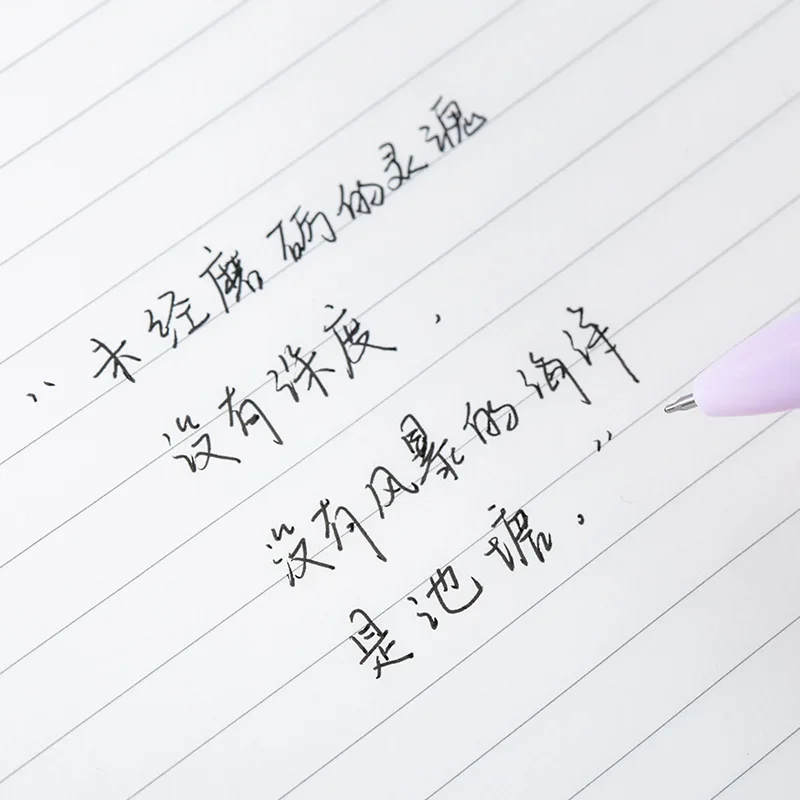 “未经磨砺的灵魂
没有深度，
没有风暴的海洋
是池塘.”